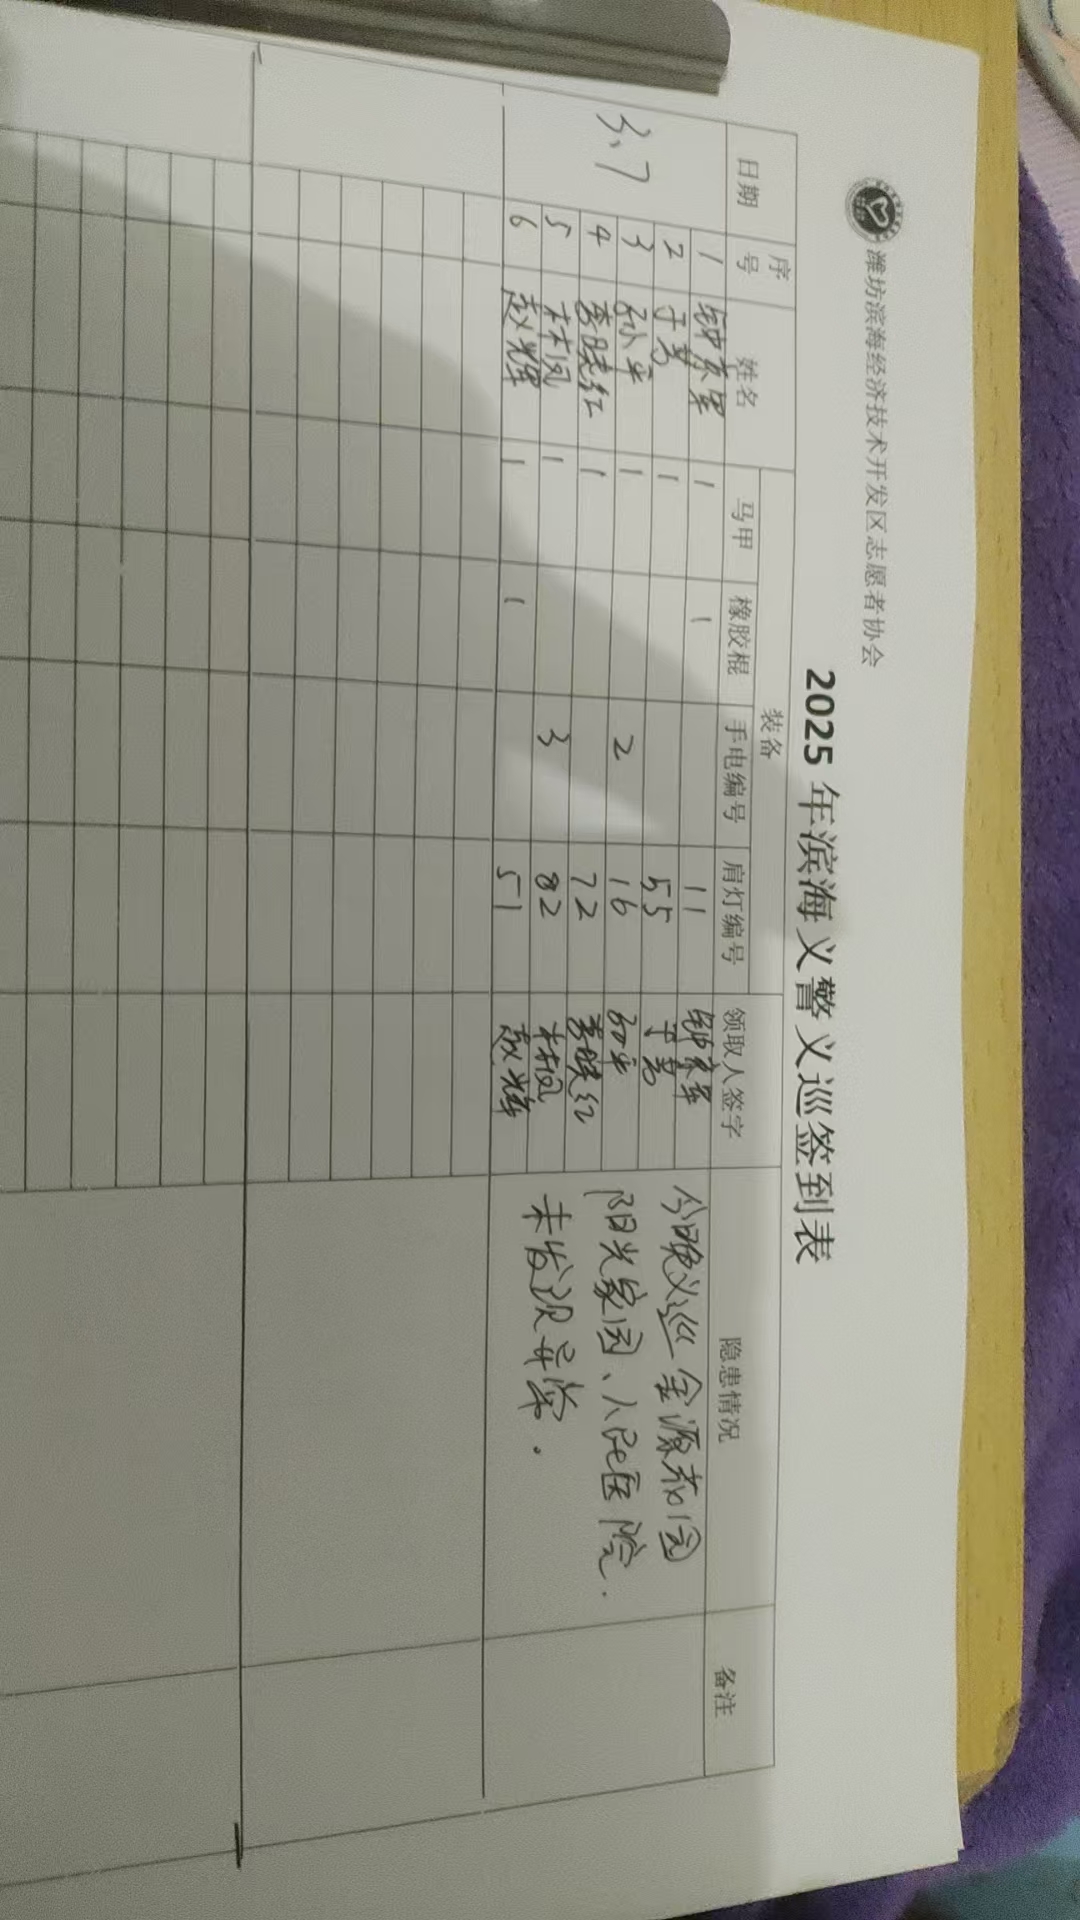 潍坊滨海经济技术开发区志愿者协会
2025 年滨海义警义巡签到表
日期 序号 姓名 装备 领取人签字 隐患情况 备注
马甲 橡胶棍 手电编号 肩灯编号
3.7
1 1 1 11
2 于勇 1 55 于勇
3 孙平 1 2 16 孙平
4 李晓红 1 72 李晓红
5 林凤 1 3 82 林凤
6 赵辉 1 1 51 赵辉
今晚义巡金源花园
阳光家园、人民医院.
未发现异常.